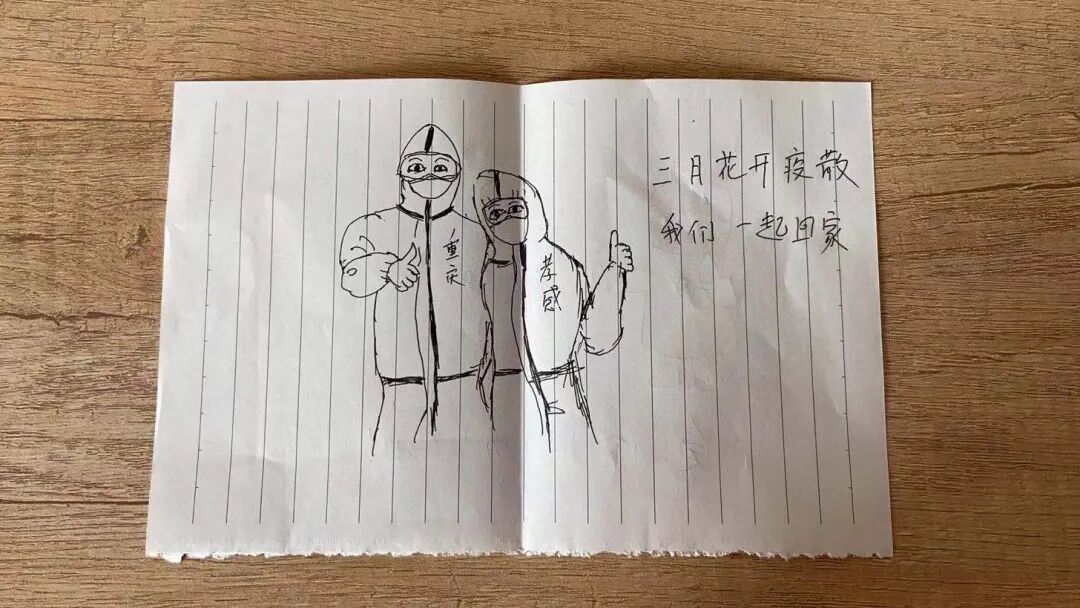 三月花开疫散
我们一起回家
重庆
孝感